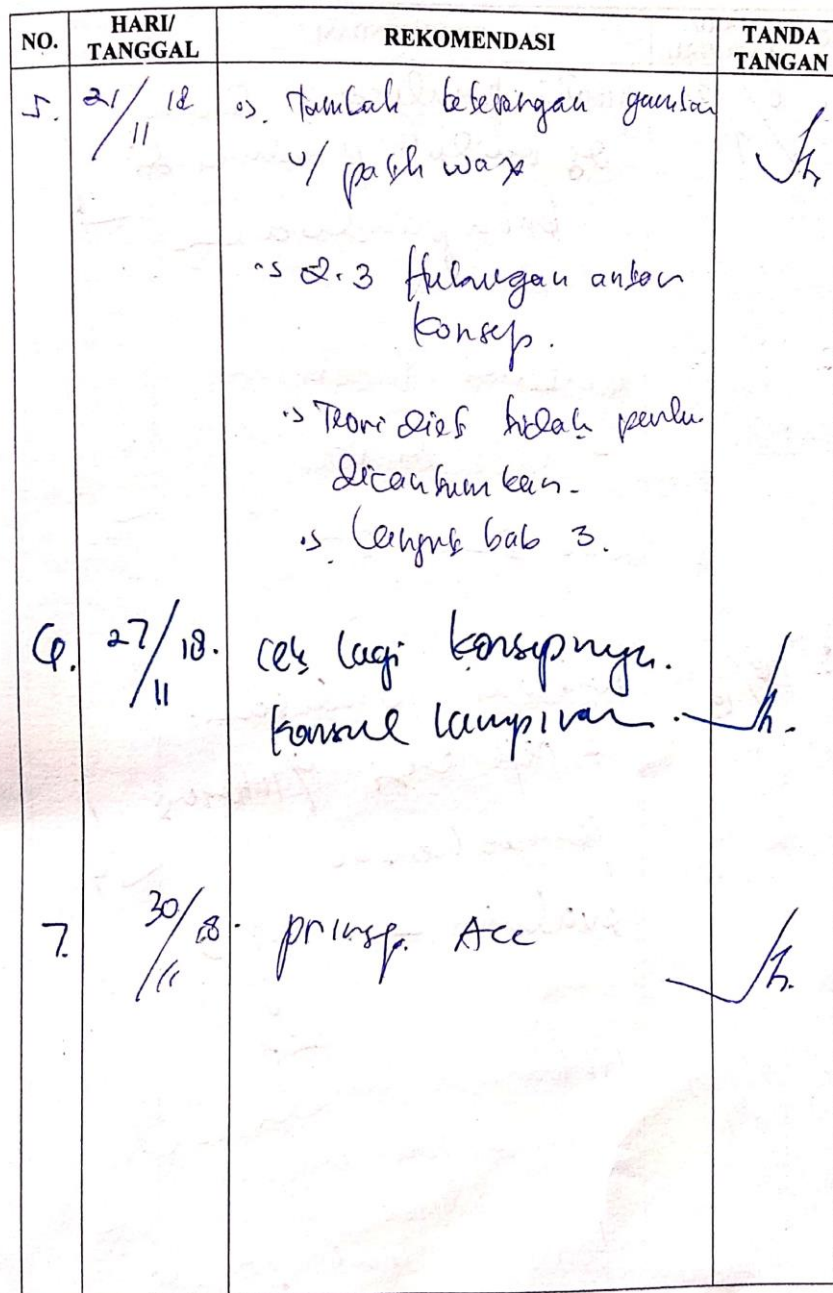 NO. HARI/ TANGGAL REKOMENDASI TANDA TANGAN
5. 21/11 18 Tambah keterangan gambar
u/
2.3 Hubungan antar
konsep.
Teori diet tidak perlu
dicantumkan.
bab 3.
6. 27/11 18. cek lagi konsepnya.
konsul lampiran.
7. 30/11 18. prinsp. Acc